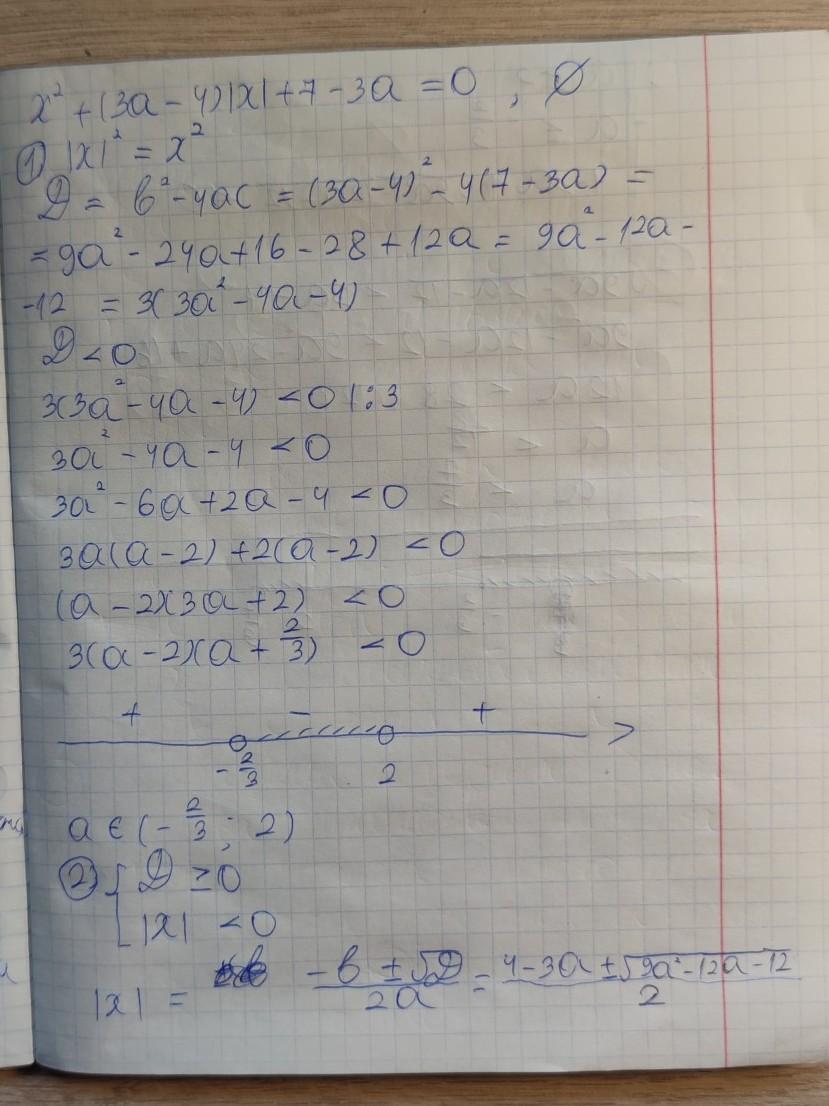 x² + (3a - 4)|x| + 7 - 3a = 0 , ∅
① |x|² = x²
D = b² - 4ac = (3a-4)² - 4(7-3a) =
= 9a² - 24a + 16 - 28 + 12a = 9a² - 12a -
-12 = 3(3a² - 4a - 4)
D < 0
3(3a² - 4a - 4) < 0 |:3
3a² - 4a - 4 < 0
3a² - 6a + 2a - 4 < 0
3a(a-2) + 2(a-2) < 0
(a - 2)(3a + 2) < 0
3(a - 2)(a + 2/3) < 0
+ - +
-2/3 2
a ∈ (-2/3 ; 2)
② { D ≥ 0
|x| < 0
|x| = (-b ± √D)/2a = (4 - 3a ± √(9a² - 12a - 12))/2